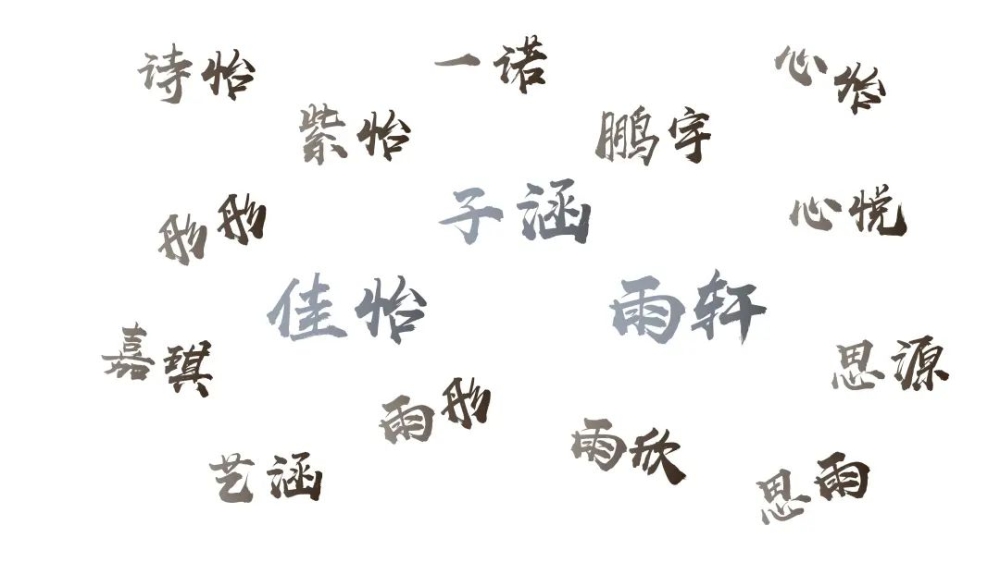 诗怡
一诺
心怡
紫怡
鹏宇
彤彤
子涵
心悦
佳怡
雨轩
嘉琪
思源
雨彤
雨欣
艺涵
思雨